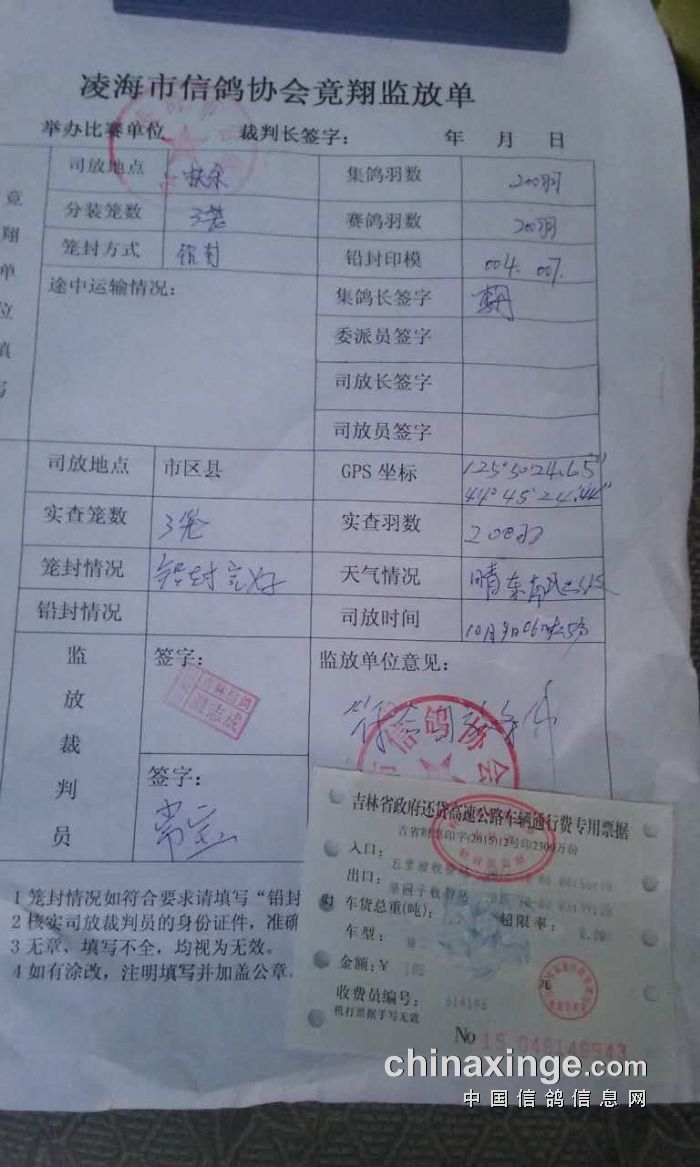 凌海市信鸽协会竟翔监放单
举办比赛单位 裁判长签字： 年 月 日
竟翔单位填写
司放地点 扶余 集鸽羽数 200羽
分装笼数 3笼 赛鸽羽数 200羽
笼封方式 铅封 铅封印模 004. 007.
途中运输情况： 集鸽长签字
委派员签字
司放长签字
司放员签字
司放地点 市区县 GPS 坐标 125°50′24.65″
44°45′24.44″
实查笼数 3笼 实查羽数 200羽
笼封情况 铅封完好 天气情况 晴 东南风
铅封情况 司放时间 10月9日
监放裁判员 签字： 监放单位意见：
吉林信鸽
志成
信鸽协会
签字：
1 笼封情况如符合要求请填写“铅封
2 核实司放裁判员的身份证件，准确
3 无章、填写不全，均视为无效。
4 如有涂改，注明填写并加盖公章。
吉林省政府还贷高速公路车辆通行费专用票据
吉省财票印字(2015)12号印2300万份
入口：
出口：
车货总重(吨)： 超限率：
车型：
金额：¥ 元
收费员编号： 614146
机打票据手写无效
No 15 048149943
chinaxinge.com
中国信鸽信息网